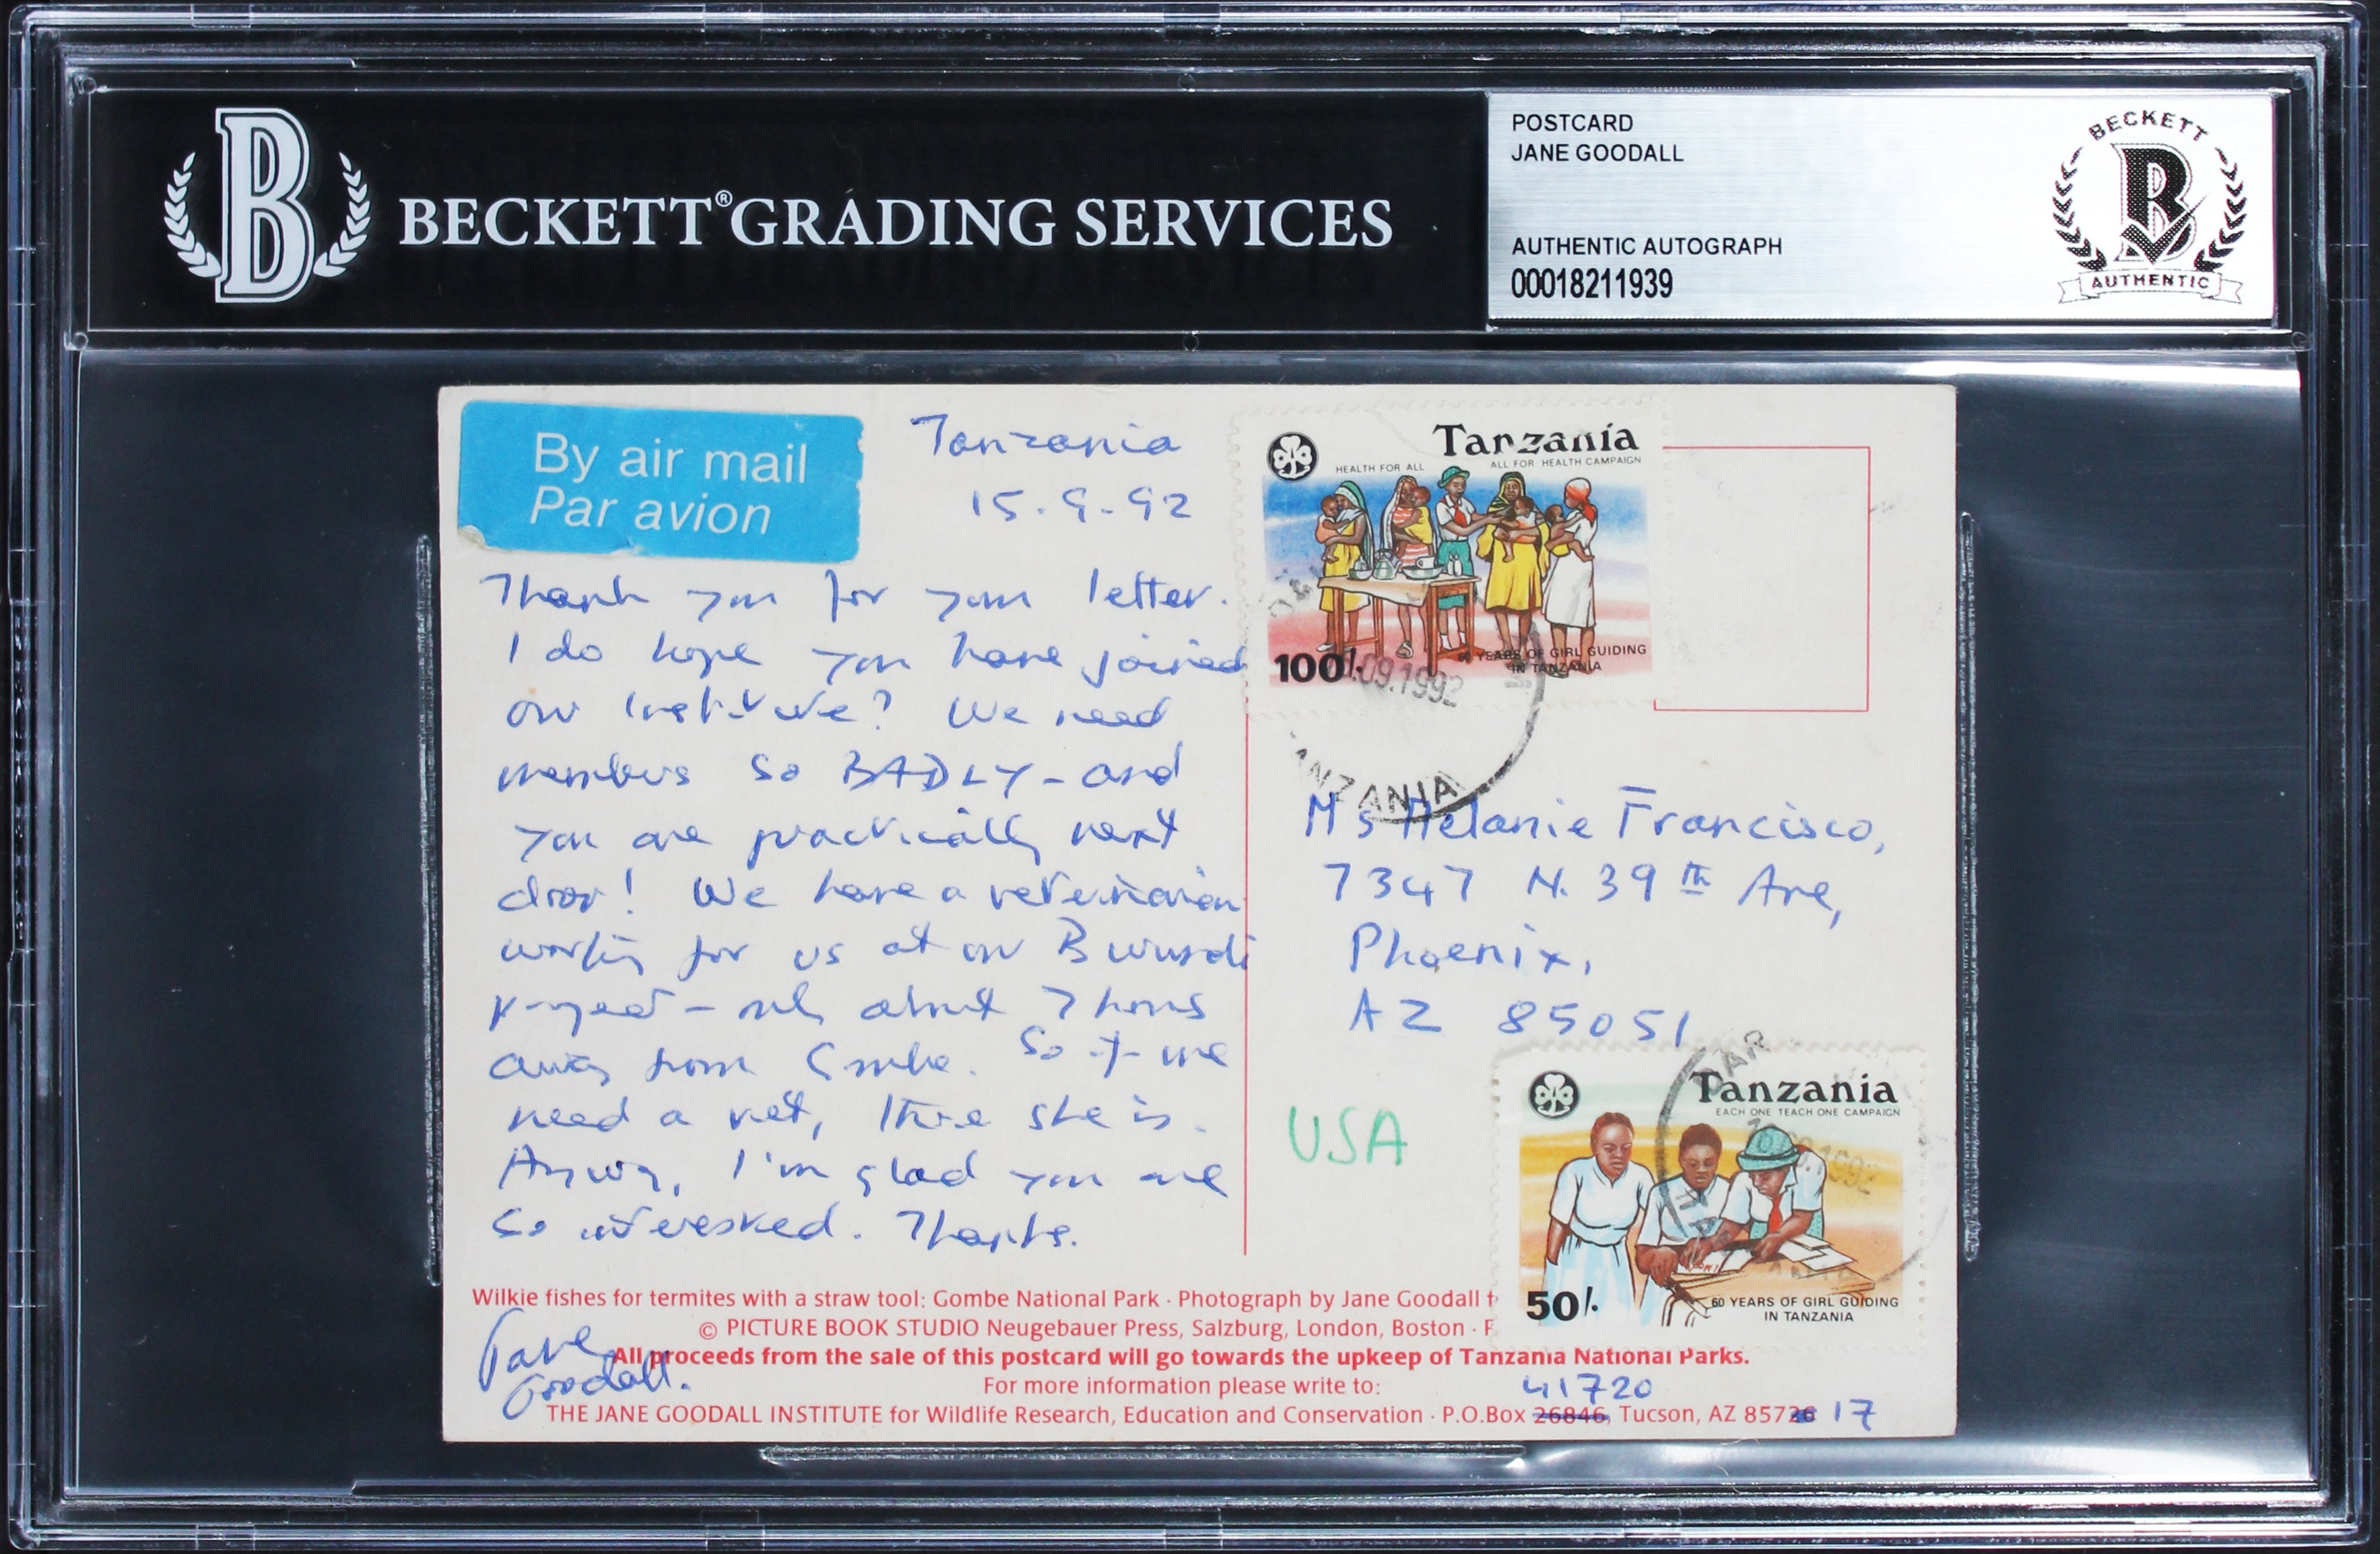 BECKETT® GRADING SERVICES
POSTCARD
JANE GOODALL
AUTHENTIC AUTOGRAPH
00018211939
BECKETT
AUTHENTIC
By air mail
Par avion
Tanzania
15.9.92
Thank you for your letter.
I do hope you have joined
our Institute? We need
members so BADLY - and
you are practically next
door! We have a veterinarian
working for us at our Burundi
project - only about 7 hours
away from Gombe. So if we
need a vet, there she is.
Anyway, I'm glad you are
so interested. Thanks.
Jane
Goodall.
Tanzania
HEALTH FOR ALL
ALL FOR HEALTH CAMPAIGN
100/.
60 YEARS OF GIRL GUIDING
IN TANZANIA
.09.1992
ANZANIA
Ms Melanie Francisco,
7347 N. 39th Ave,
Phoenix,
AZ 85051
USA
DAR
Tanzania
EACH ONE TEACH ONE CAMPAIGN
50/.
60 YEARS OF GIRL GUIDING
IN TANZANIA
Wilkie fishes for termites with a straw tool: Gombe National Park · Photograph by Jane Goodall
© PICTURE BOOK STUDIO Neugebauer Press, Salzburg, London, Boston ·
All proceeds from the sale of this postcard will go towards the upkeep of Tanzania National Parks.
For more information please write to:
41720
THE JANE GOODALL INSTITUTE for Wildlife Research, Education and Conservation · P.O.Box 26846, Tucson, AZ 85726 17